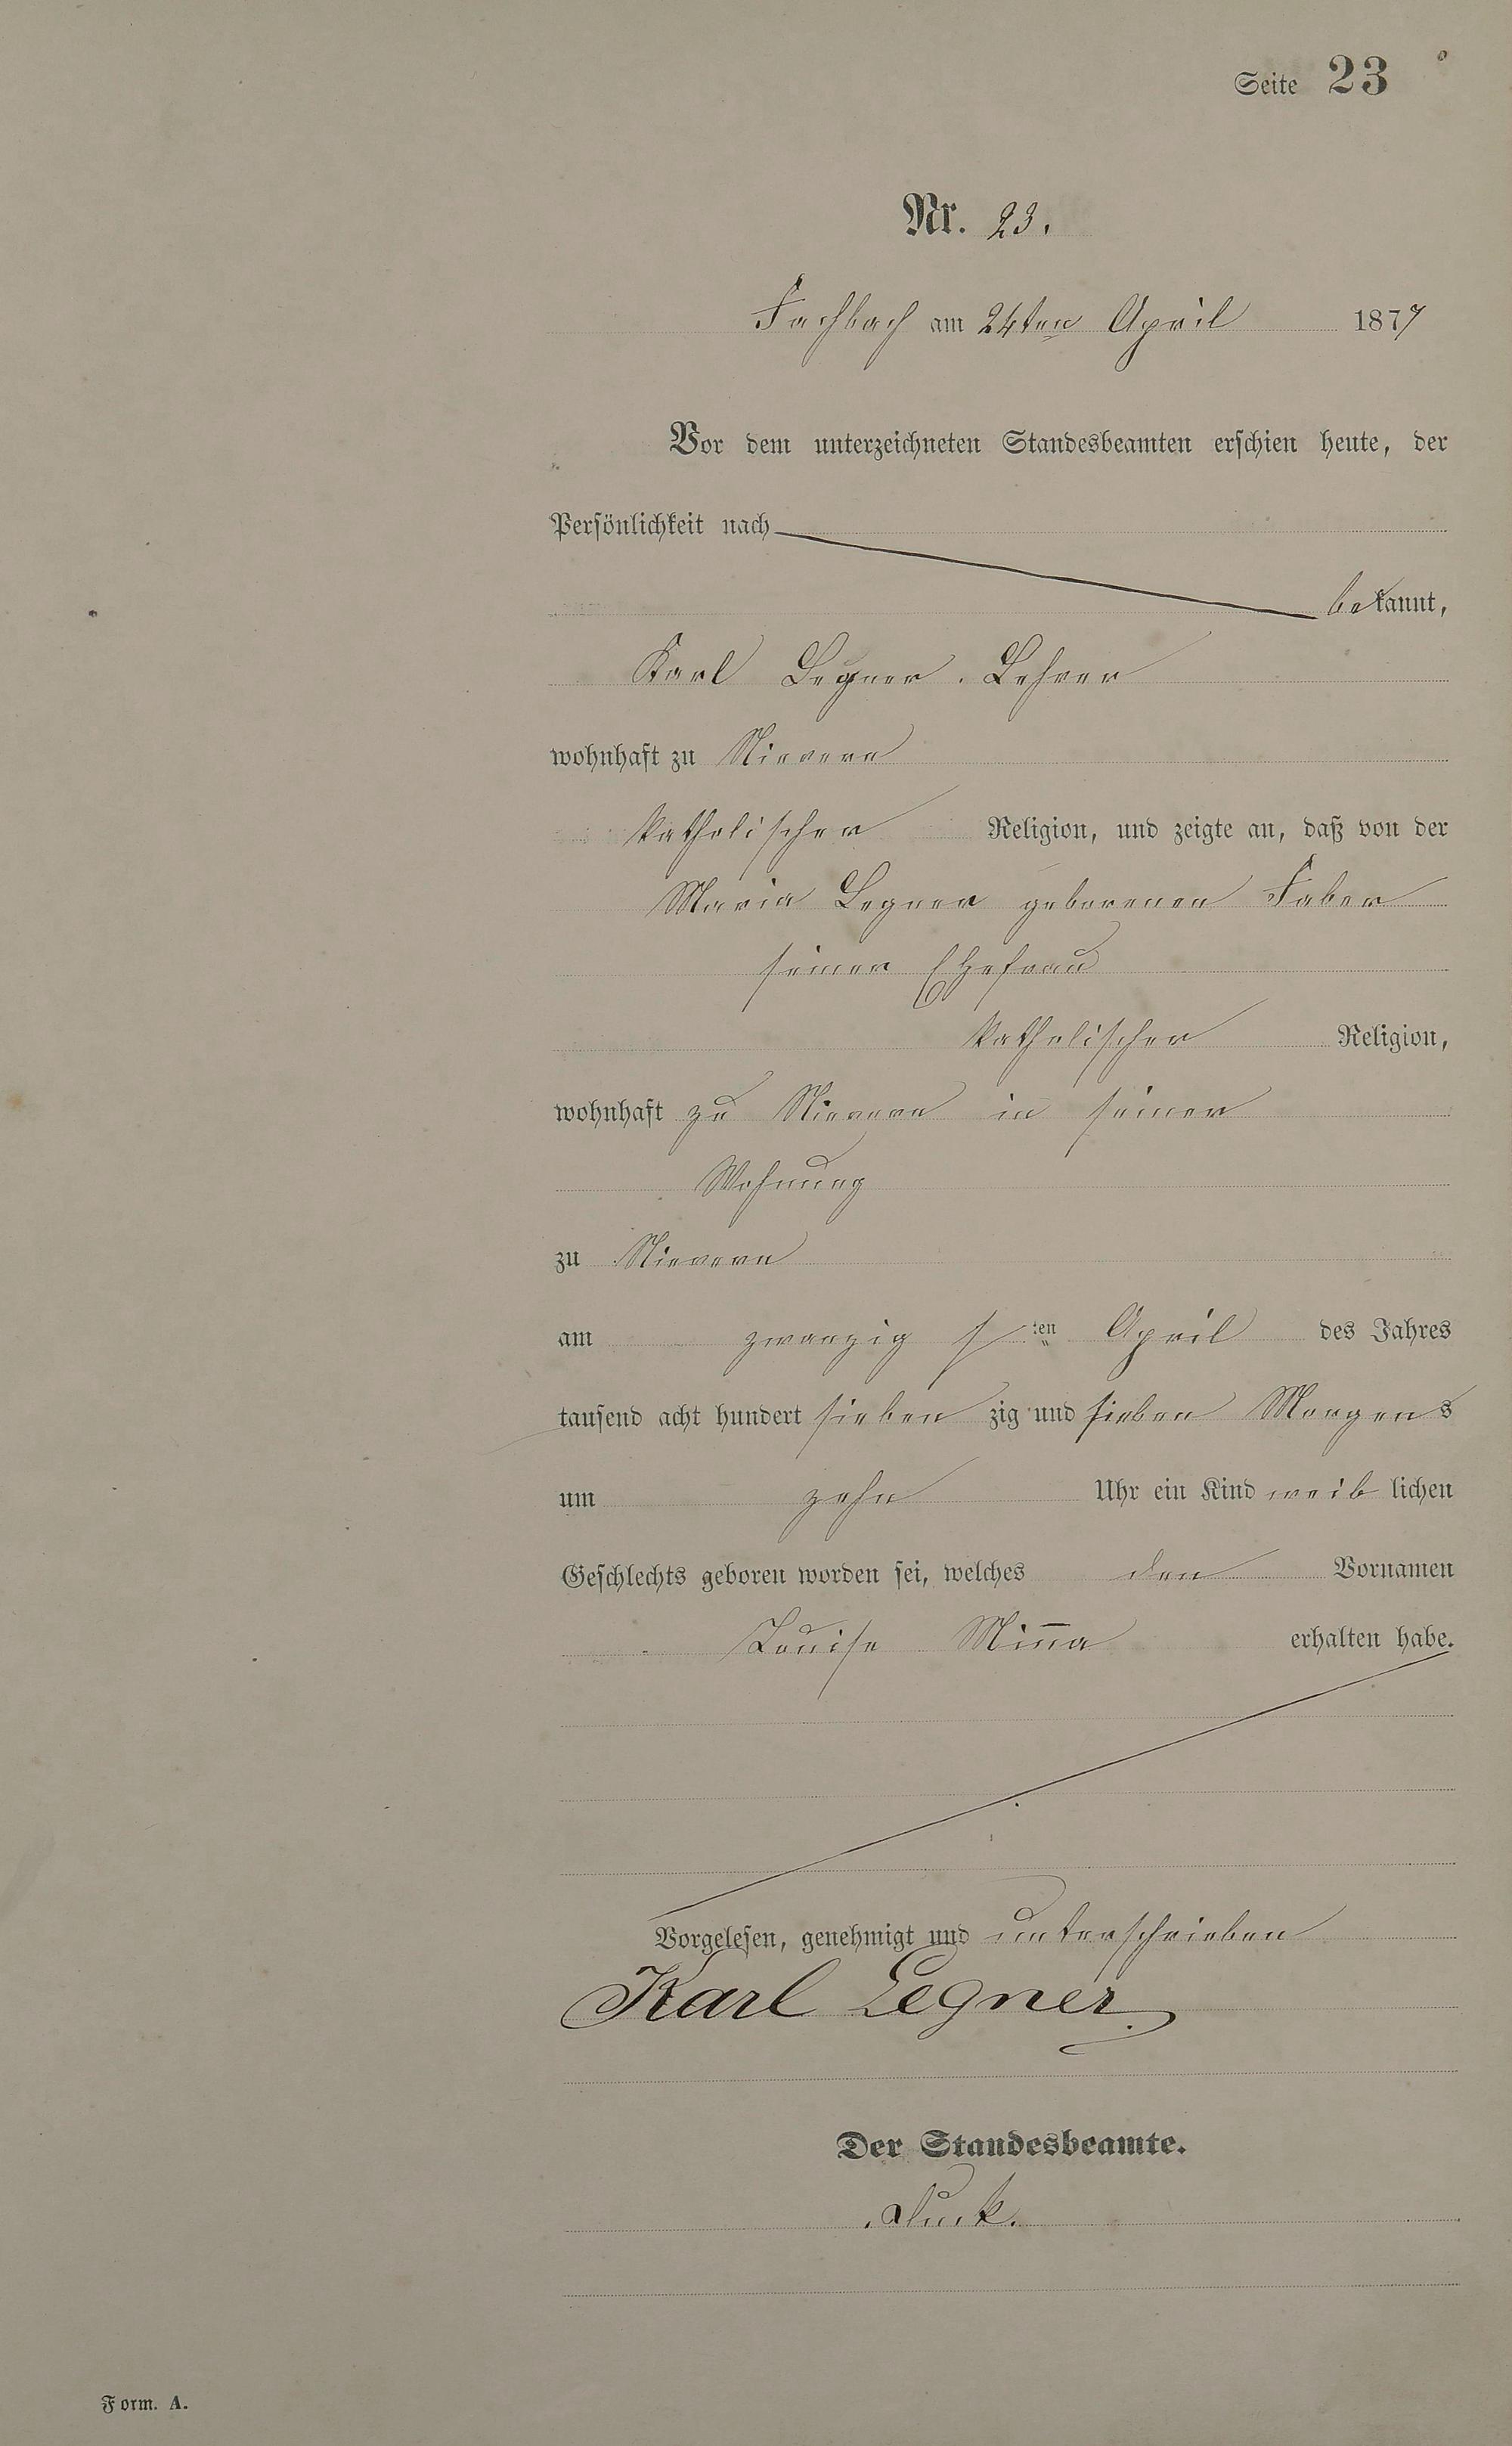 Seite 23
Nr. 23.
Fachbach am 24ten April 1877
Vor dem unterzeichneten Standesbeamten erschien heute, der
Persönlichkeit nach
bekannt,
Karl Legner. Lehrer
wohnhaft zu Nievern
katholischer Religion, und zeigte an, daß von der
Maria Legner geborenen Faber
seiner Ehefrau
katholischer Religion,
wohnhaft zu Nievern in seiner
Wohnung
zu Nievern
am zwanzig sten April des Jahres
tausend acht hundert sieben zig und sieben Morgens
um zehn Uhr ein Kind weib lichen
Geschlechts geboren worden sei, welches den Vornamen
Louise Miña erhalten habe.
Vorgelesen, genehmigt und unterschrieben
Karl Legner
Der Standesbeamte.
Form. A.